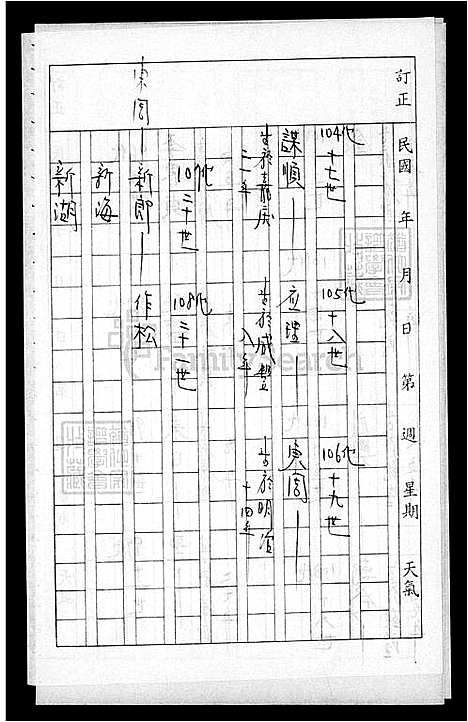 訂正
民國 年 月 日 第 週 星期 天氣
104代 十七世
105代 十八世
106代 十九世
謀順—
应理—
東宮—
吉於嘉庆二一年
吉於咸豐八年
吉於明治十四年
107代 二十世
108代 二十一世
東宮—新郎—作松
新海
新湖
FamilySearch